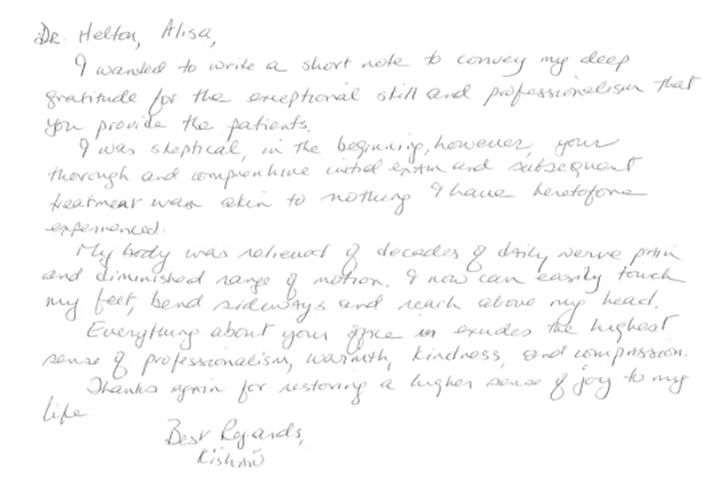 Dr. Helton, Alisa,
I wanted to write a short note to convey my deep
gratitude for the exceptional skill and professionalism that
you provide the patients.
I was skeptical, in the beginning, however, your
thorough and comprehensive initial exam and subsequent
treatment was akin to nothing I have heretofore
experienced.
My body was relieved of decades of daily nerve pain
and diminished range of motion. I now can easily touch
my feet, bend sideways and reach above my head.
Everything about your office exudes the highest
sense of professionalism, warmth, kindness, and compassion.
Thanks again for restoring a higher sense of joy to my
life
Best Regards,